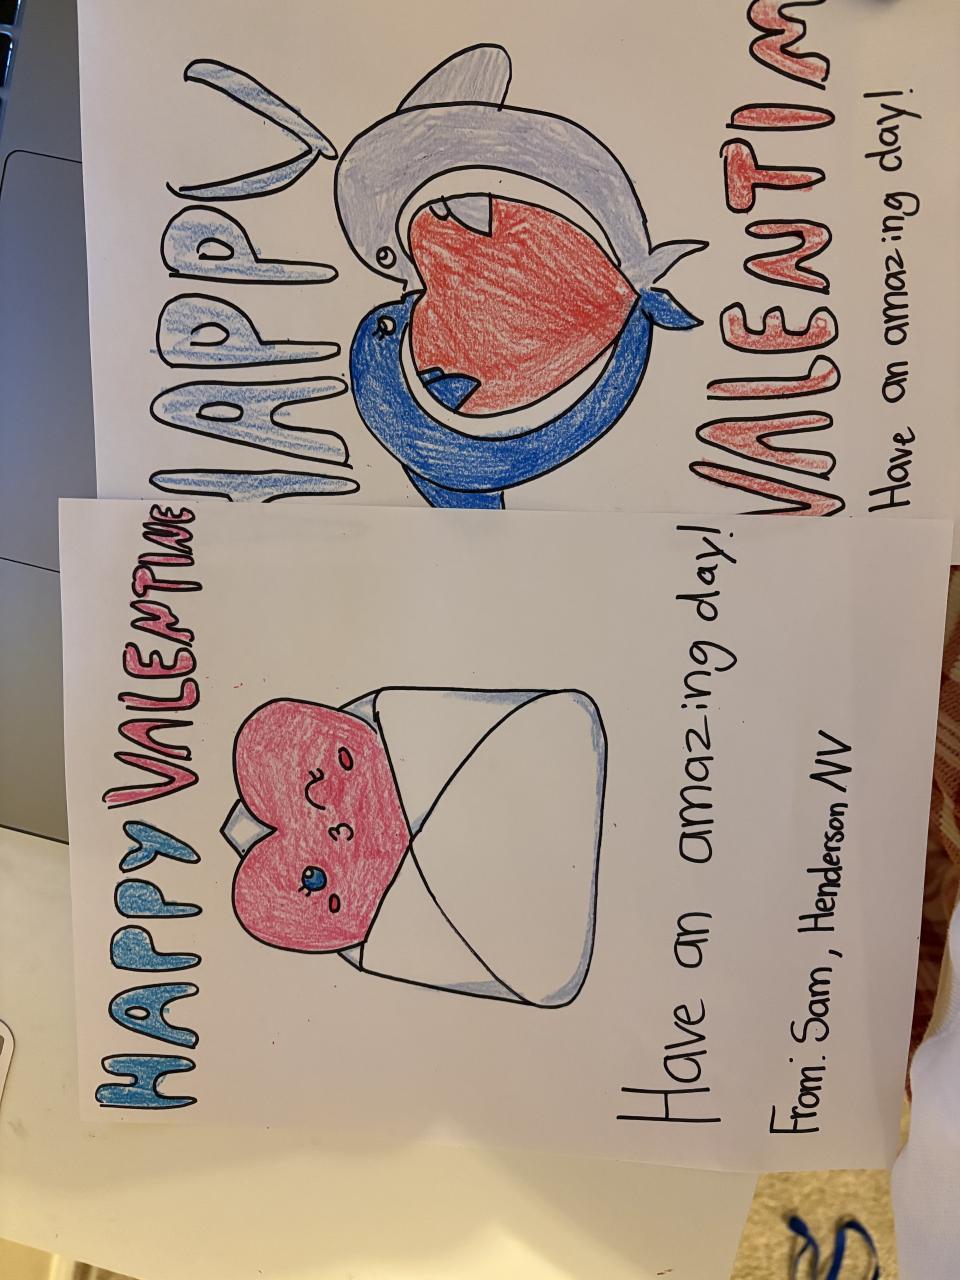 HAPPY VALENTINE
Have an amazing day!
From: Sam, Henderson NV
HAPPY
VALENTIN
Have an amazing day!